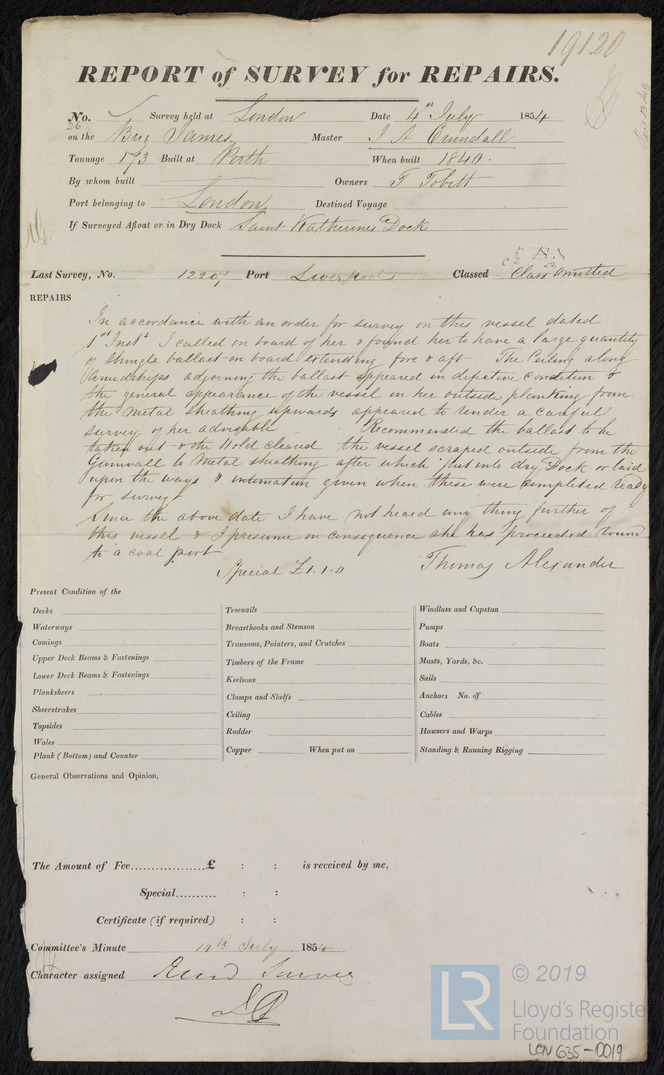 19120
REPORT of SURVEY for REPAIRS.
No. Survey held at London Date 4th July 1854
26 on the Brig James Master J A Crundall
Tonnage 193 Built at Perth When built 1840.
By whom built Owners T Tobitt
Port belonging to London Destined Voyage
If Surveyed Afloat or in Dry Dock Saint Katherines Dock
Last Survey, No. 12207 Port Liverpool Classed Class omitted
REPAIRS
In accordance with an order for survey on this vessel dated
1st Inst I called on board of her & found her to have a large quantity
of shingle ballast on board extending fore & aft The Ceiling along
Amidships adjoining the ballast appeared in defective condition &
the general appearance of the vessel in her outside planking from
the metal sheathing upwards appeared to render a careful
survey of her advisable Recommended the ballast to be
taken out & the Hold cleared the vessel scraped outside from the
Gunwall to Metal sheathing after which put into dry Dock or laid
upon the ways & intimation given when these were completed ready
for survey
Since the above date I have not heard any thing further of
this vessel & I presume in consequence she has proceeded round
to a coal port
Special £1.1.0 Thomas Alexander
Present Condition of the
Decks
Waterways
Comings
Upper Deck Beams & Fastenings
Lower Deck Beams & Fastenings
Planksheers
Sheerstrakes
Topsides
Wales
Plank (Bottom) and Counter
Treenails
Breasthooks and Stemson
Transoms, Pointers, and Crutches
Timbers of the Frame
Keelsons
Clamps and Shelfs
Ceiling
Rudder
Copper When put on
Windlass and Capstan
Pumps
Boats
Masts, Yards, &c.
Sails
Anchors No. of
Cables
Hawsers and Warps
Standing & Running Rigging
General Observations and Opinion,
The Amount of Fee..................£ : : is received by me,
Special.......... : :
Certificate (if required) : :
Committee's Minute 14th July 1854
Character assigned
© 2019
LR Lloyd's Register
Foundation
LON 635-0019